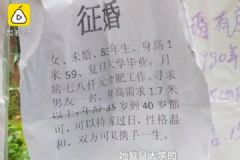 梨视频
征婚
女、未婚、83年生。身高1
米59、复旦大学毕业。月
薪七八仟元合肥工作。寻求
男友一名，身高需求1.7
米以上，年龄35岁到40岁都
可，可以持家过日，性格温
和，双方可以携手一生。
她复旦大学的